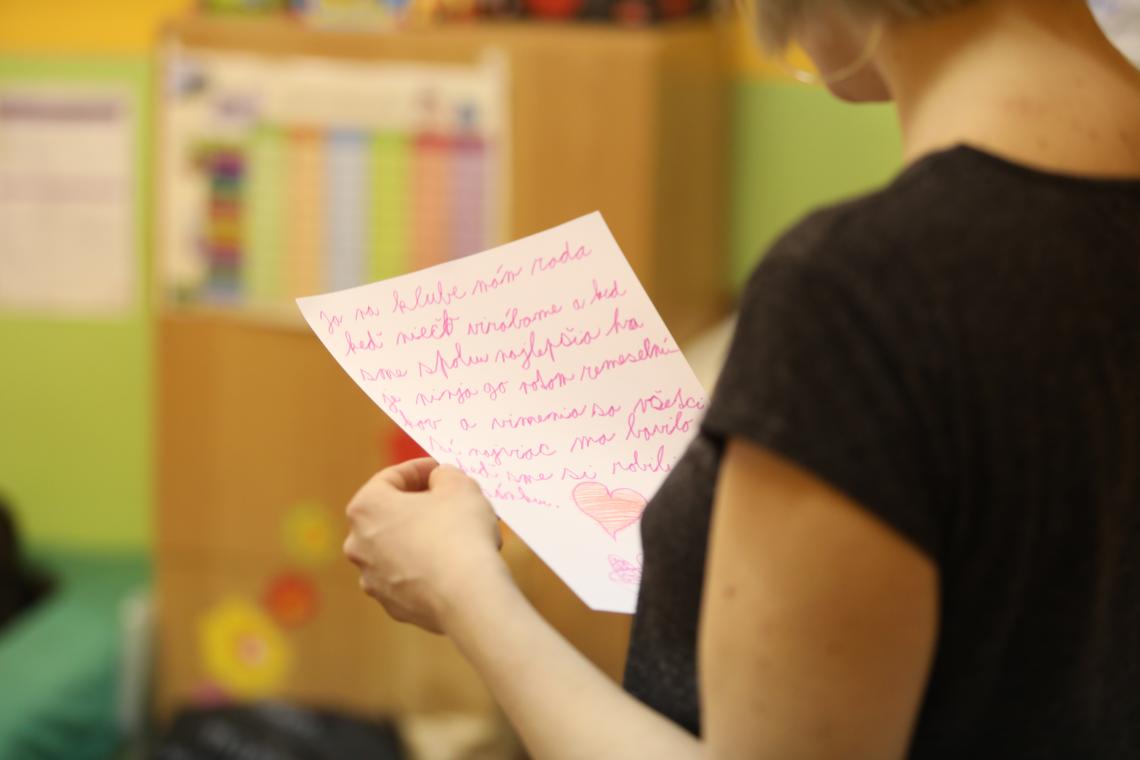 ja na klube mám rada
keď niečo virábame a keď
sme spolu najlepšia hra
je ninja go potom remeselní
kov a vimenia sa všetci
najviac ma bavilo
keď sme si robili